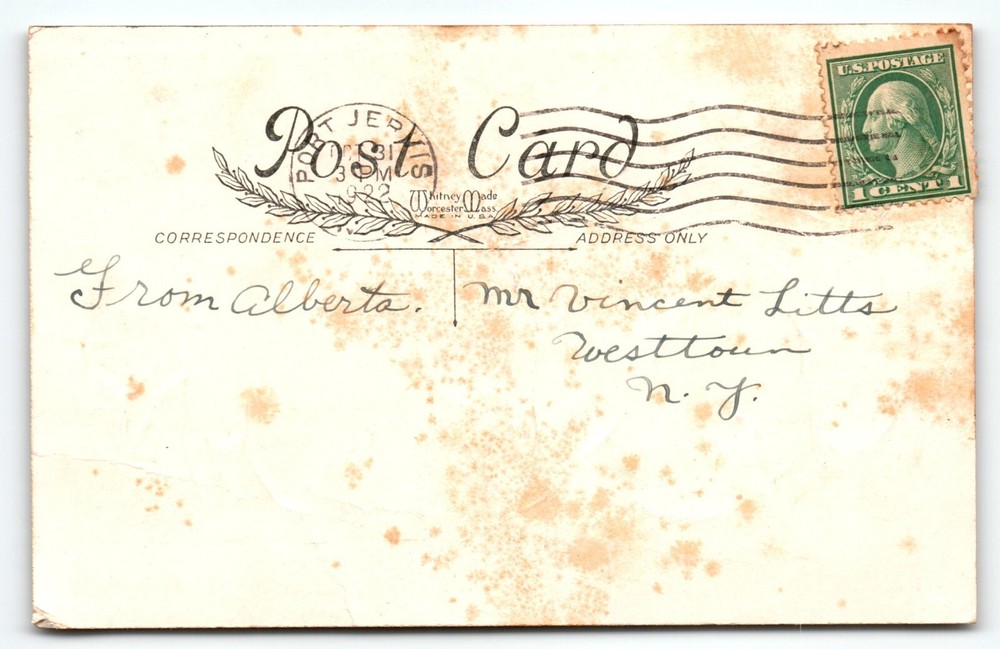 Post Card
PORT JERVIS
31
3 PM
1922
U.S.POSTAGE
1 CENT 1
Whitney Made
Worcester Mass.
MADE IN U.S.A.
CORRESPONDENCE
ADDRESS ONLY
From Alberta.
Mr Vincent Litts
Westtown
N. Y.